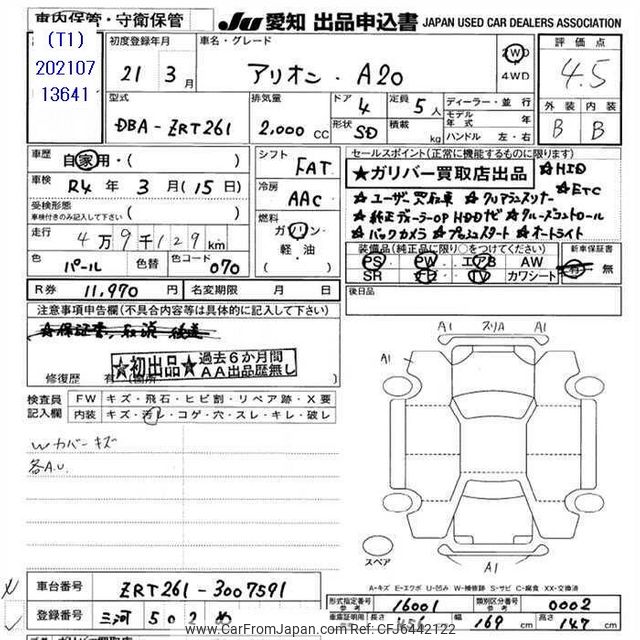 車内保管・守衛保管
JU 愛知 出品申込書 JAPAN USED CAR DEALERS ASSOCIATION
(T1)
202107
13641
初度登録年月
21 3 月
車名・グレード
アリオン・A20
2WD
4WD
評価点
4.5
外装 内装
B B
型式
DBA-ZRT261
排気量
2,000 CC
ドア 4
形状 SD
定員 5 人
積載 kg
ディーラー・並行
モデル年式 年
ハンドル 左・右
車歴 自家用・( )
車検 R4 年 3 月(15 日)
受検形態
車検付きのみ記入して下さい ( )
走行 4万9千129 km
色 パール 色替 色コード 070
シフト FAT
冷房 AAC
燃料
ガソリン・
軽・油
セールスポイント(正常に機能するものに限ります)
★ガリバー買取店出品 ☆HID
☆ETC
☆ユーザー買取車 ☆クリアランスソナー
☆純正ディーラーOP HDDナビ ☆クルーズコントロール
☆バックカメラ ☆プッシュスタート ☆オートライト
装備品(純正品に限り○をつけてください)
PS PW エアB AW
SR TV カワシート
新車保証書
有・無
R券 11,970 円 名変期限 月 日
後日品
注意事項申告欄(不具合内容等は具体的に記入して下さい)
★初出品★ 過去6か月間
AA出品歴無し
修復歴 有(箇所
検査員
記入欄
FW キズ・飛石・ヒビ割・リペア跡・X要
内装 キズ・汚レ・コゲ・穴・スレ・キレ・破レ
Wカバーキズ
各A.U.
A1 スリA A1
A1
スペア
A1
A-キズ E-エクボ U-凹み W-補修跡 S-サビ C-腐食 XX-交換済
車台番号 ZRT261-3007591
登録番号 三河 502 め
形式指定番号
参考
16001
類別区分番号
参考
0002
車庫証明用
参考
長さ 456 幅 169 cm 高さ 147 cm
www.CarFromJapan.com Ref: CFJ6442122